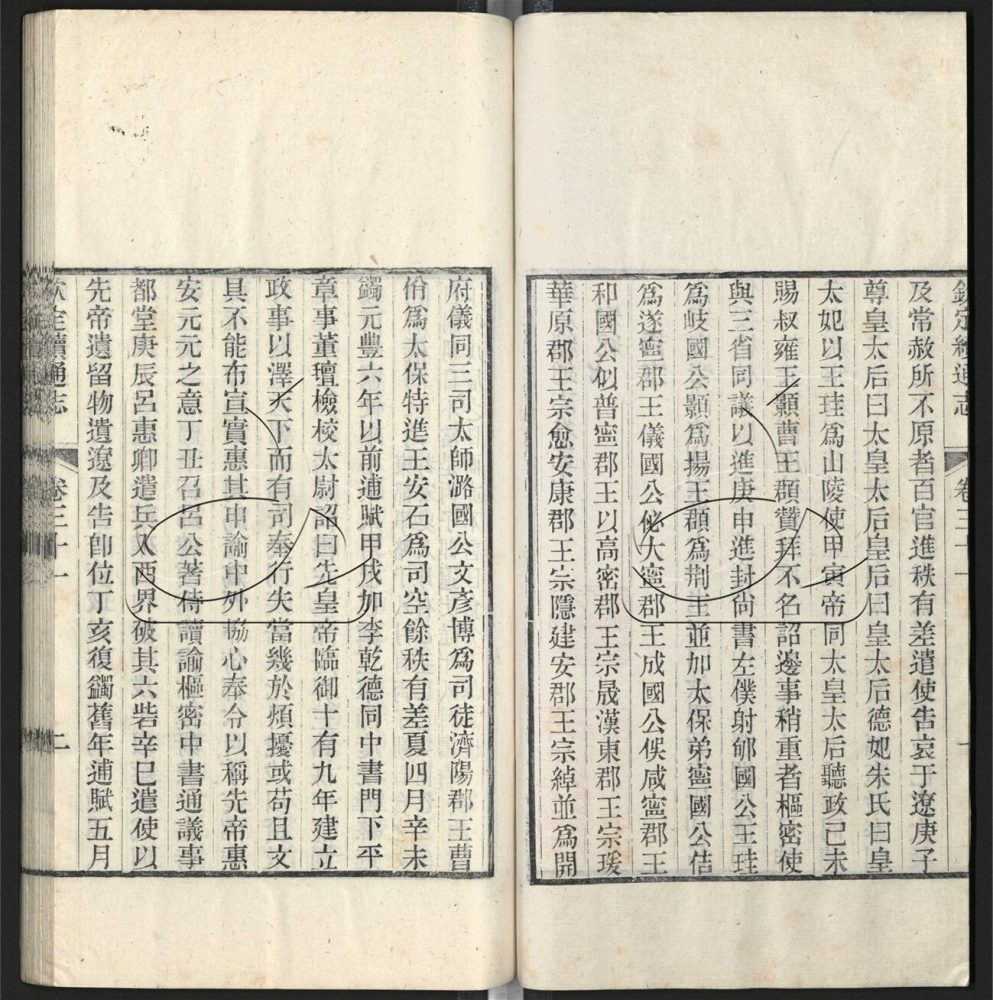 欽定續通志 卷三十一
及常赦所不原者百官進秩有差遣使告哀于遼庚子
尊皇太后曰太皇太后皇后曰皇太后德妃朱氏曰皇
太妃以王珪爲山陵使甲寅帝同太皇太后聽政己未
賜叔雍王顥曹王頵贊拜不名詔邊事稍重者樞密使
與三省同議以進庚申進封尙書左僕射郇國公王珪
爲岐國公顥爲揚王頵爲荆王並加太保弟寧國公佶
爲遂寧郡王儀國公佖大寧郡王成國公俁咸寧郡王
和國公似普寧郡王以高密郡王宗晟漢東郡王宗瑗
華原郡王宗愈安康郡王宗隱建安郡王宗綽並爲開
府儀同三司太師潞國公文彥博爲司徒濟陽郡王曹
佾爲太保特進王安石爲司空餘秩有差夏四月辛未
蠲元豐六年以前逋賦甲戌加李乾德同中書門下平
章事董氊檢校太尉詔曰先皇帝臨御十有九年建立
政事以澤天下而有司奉行失當幾於煩擾或苟且文
具不能布宣實惠其申諭中外協心奉令以稱先帝惠
安元元之意丁丑召呂公著侍讀諭樞密中書通議事
都堂庚辰呂惠卿遣兵入西界破其六砦辛巳遣使以
先帝遺留物遺遼及告卽位丁亥復蠲舊年逋賦五月
欽定續通志 卷三十一 二